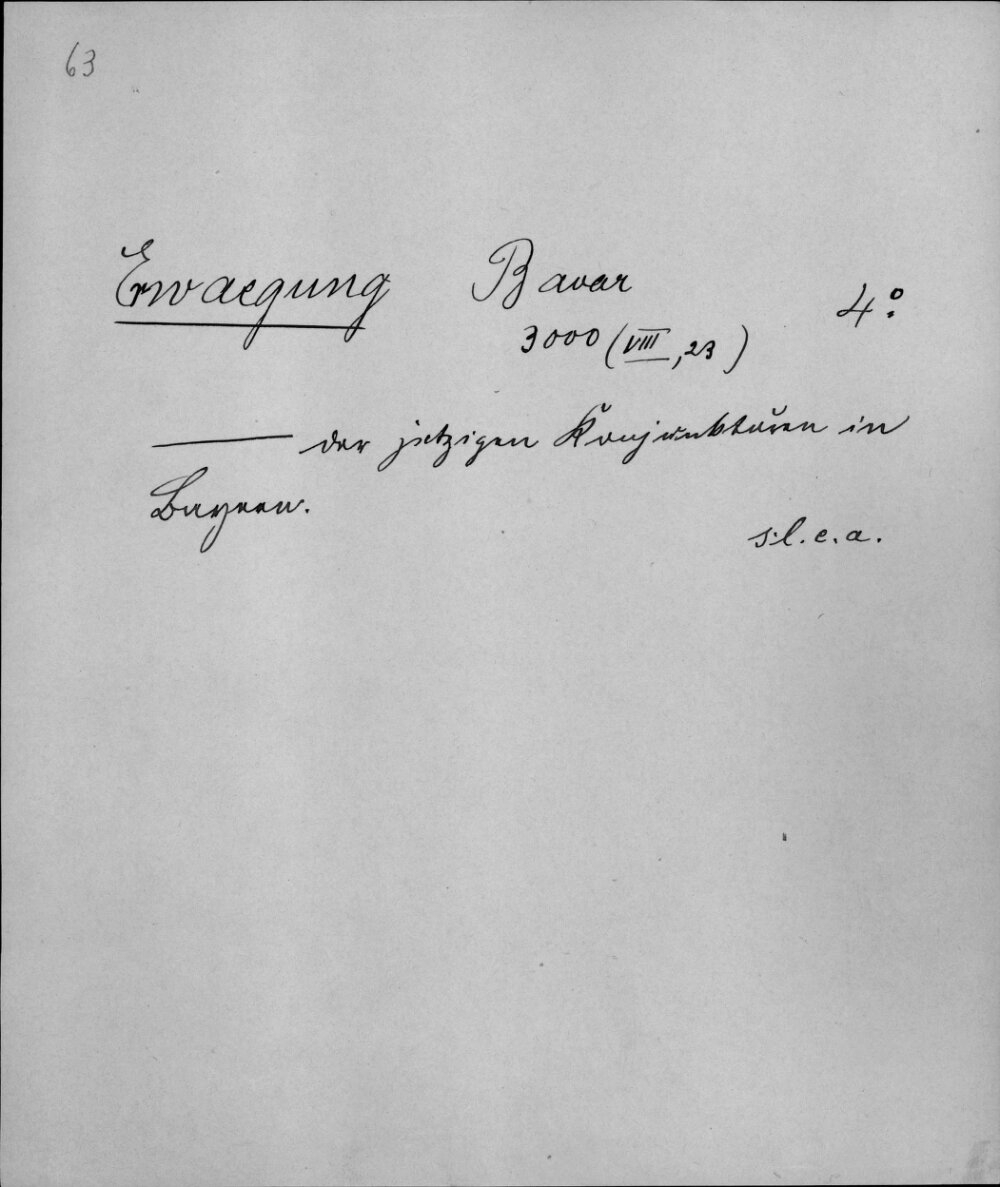 63
Erwaegung Bavar 4°.
3000 (VIII, 23)
— der jetzigen Konjunkturen in
Bayern.
s. l. e. a.